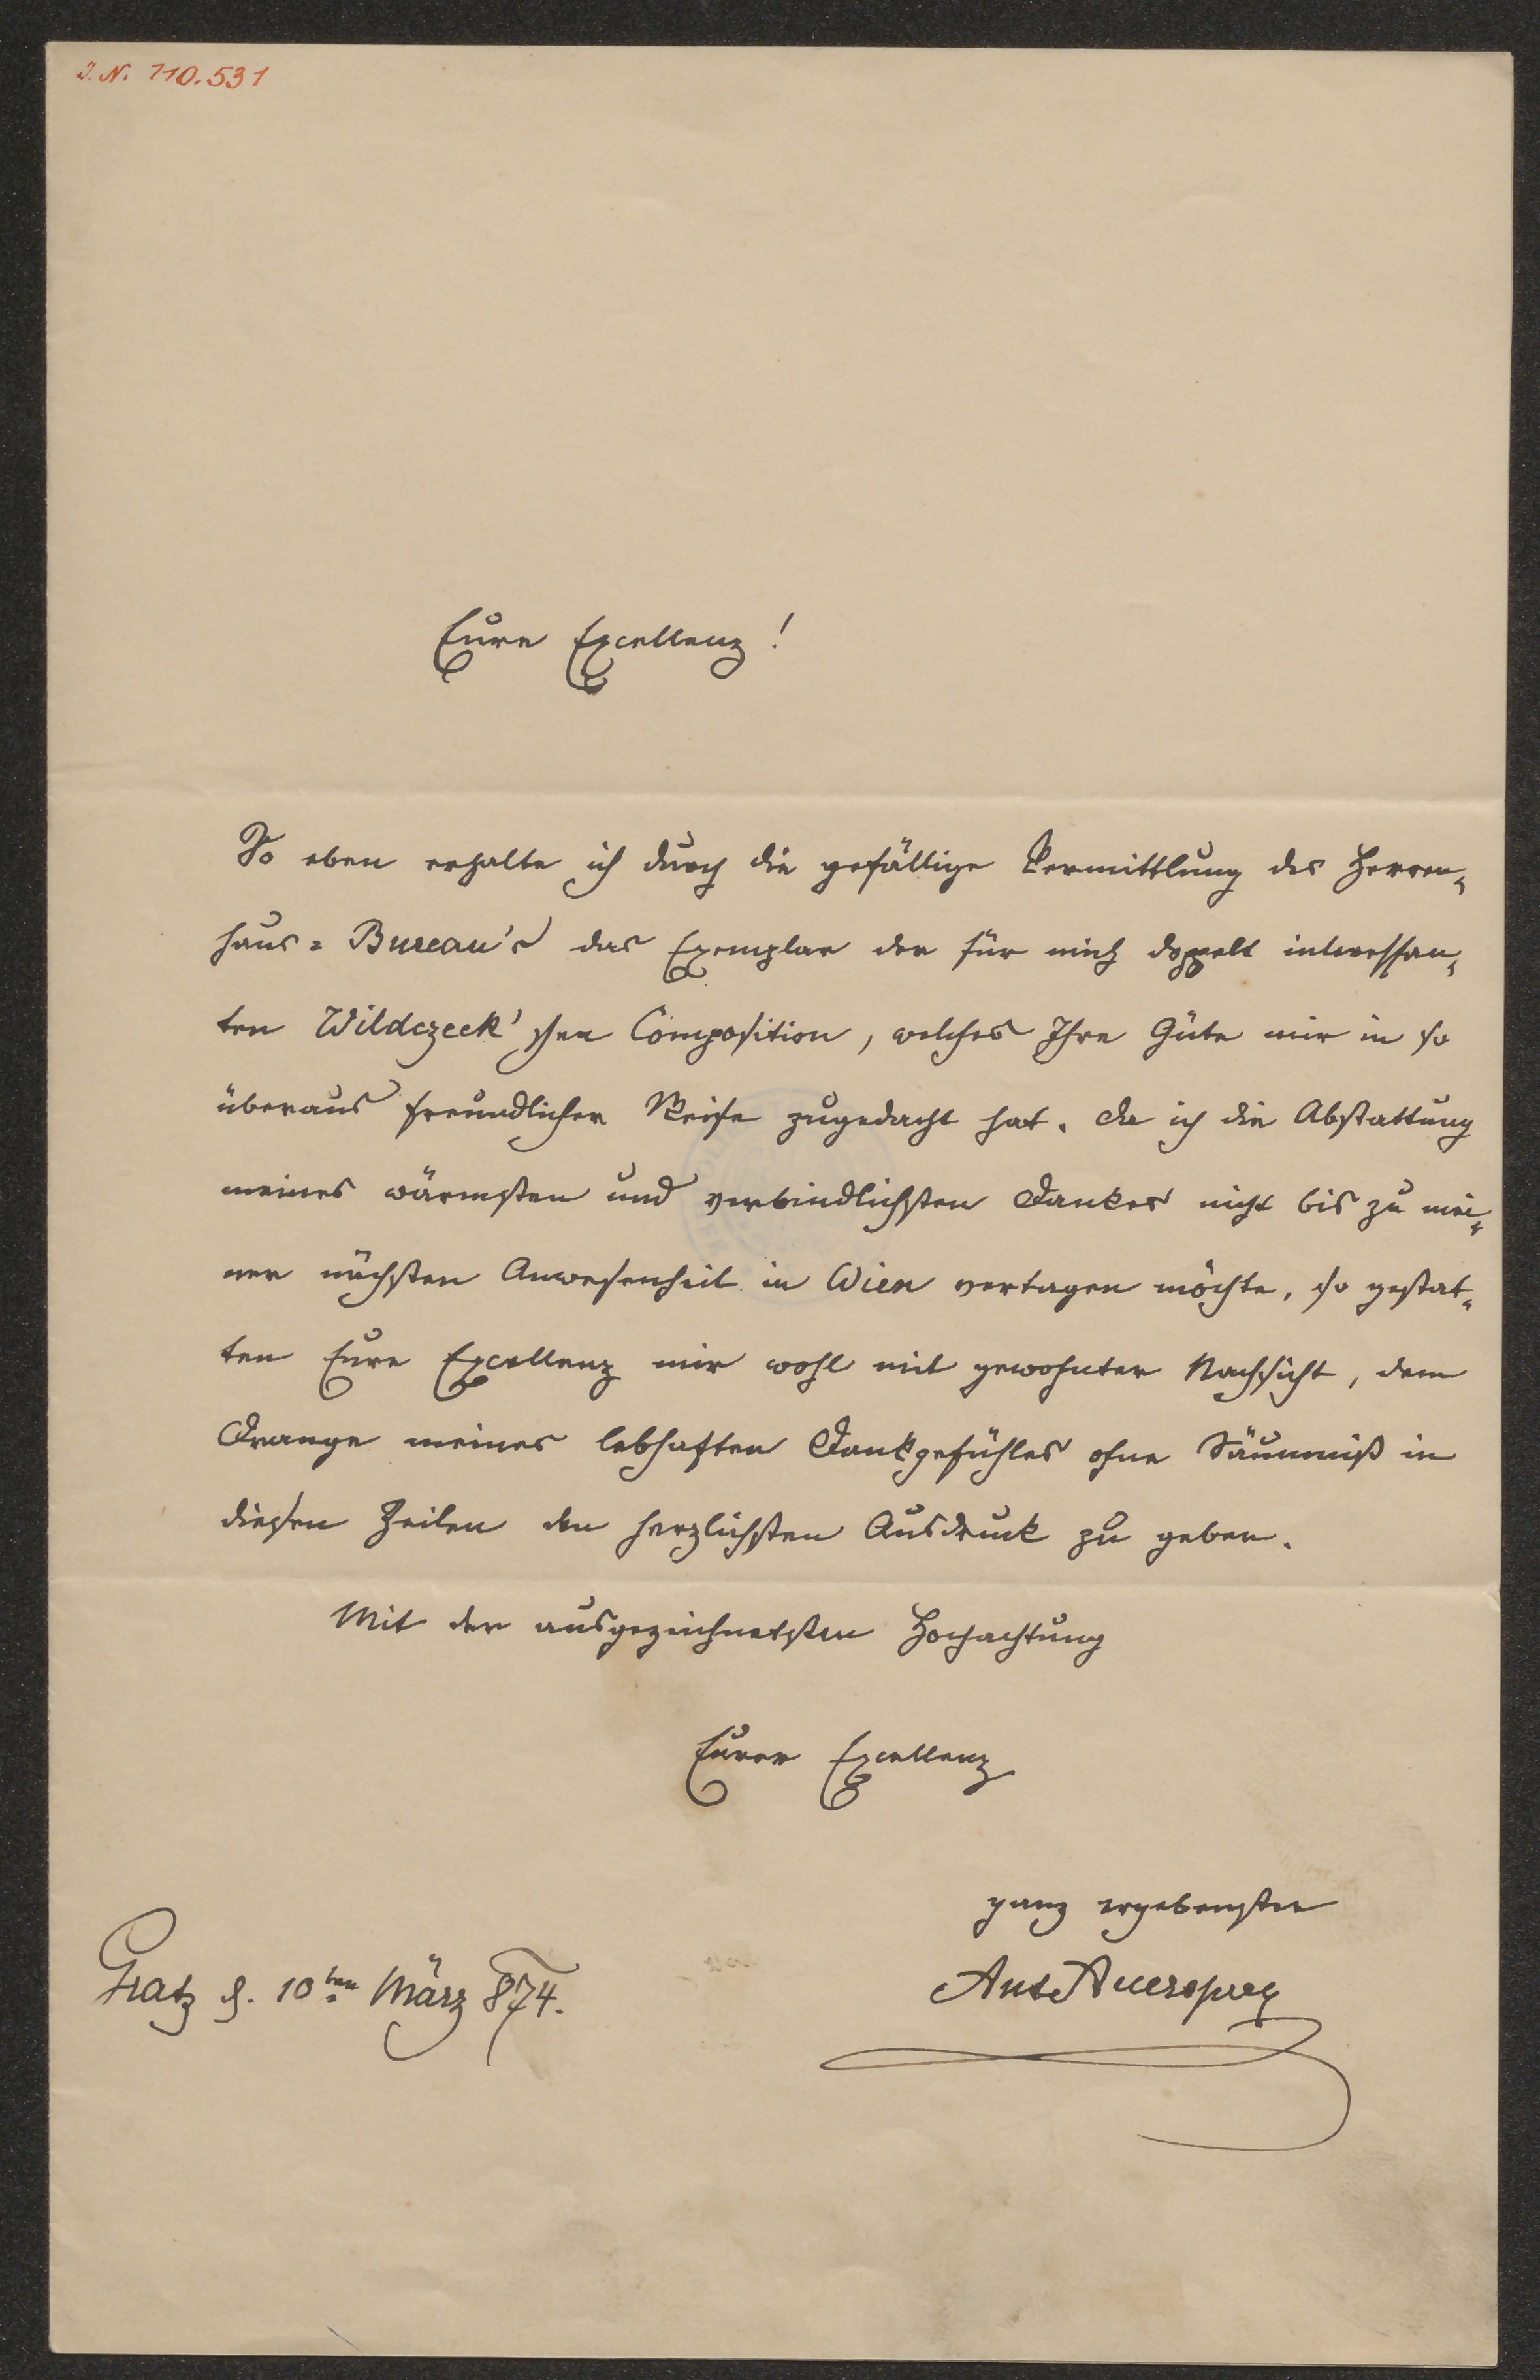 J. N. 110.531
Eure Excellenz!
So eben erhalte ich durch die gefällige Vermittlung des Herren-
haus-Bureau's das Exemplar der für mich doppelt interessan-
ten Wildczeck'schen Composition, welches Ihre Güte mir in so
überaus freundlicher Weise zugedacht hat. Da ich die Abstattung
meines wärmsten und verbindlichsten Dankes nicht bis zu mei-
ner nächsten Anwesenheit in Wien vertagen möchte, so gestat-
ten Eure Excellenz mir wohl mit gewohnter Nachsicht, dem
Drange meines lebhaften Dankgefühles ohne Säumniß in
diesen Zeilen den herzlichsten Ausdruck zu geben.
Mit der ausgezeichnetsten Hochachtung
Eurer Excellenz
ganz ergebenster
Gratz d. 10ten März 874.
Ant Auersperg